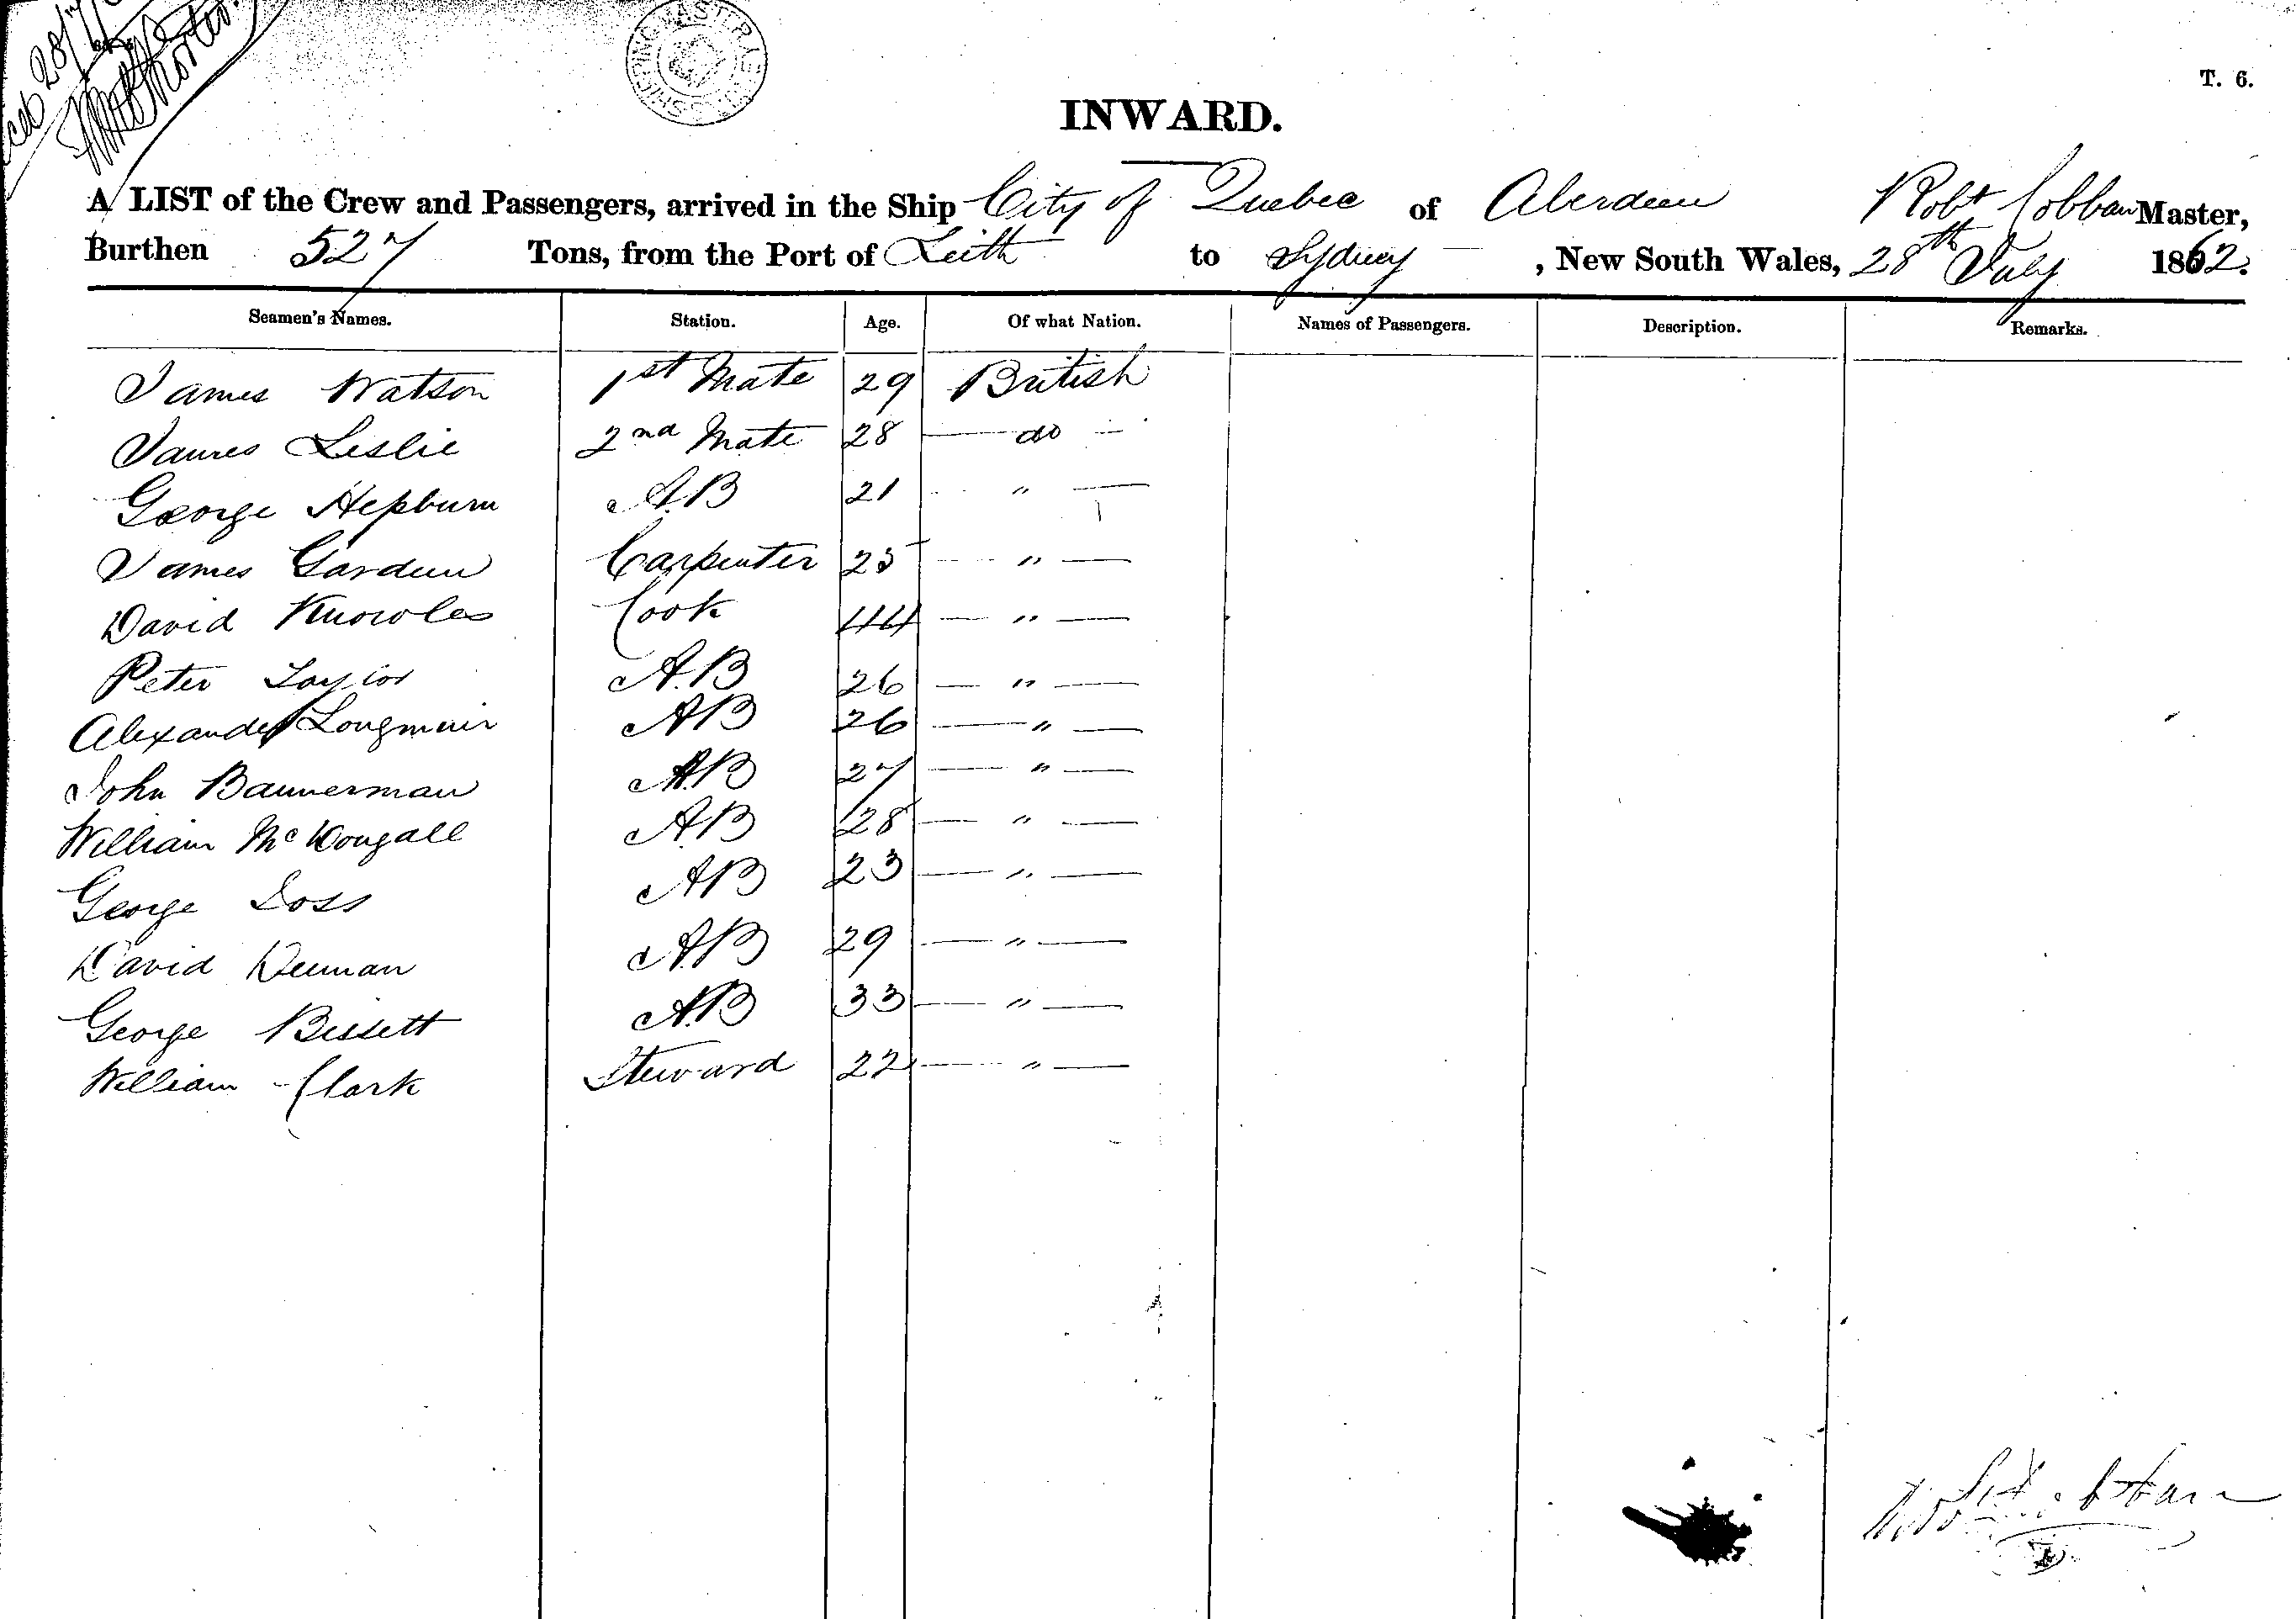 28/7/62
SHIPPING MASTER
T. 6.
INWARD.
A LIST of the Crew and Passengers, arrived in the Ship City of Quebec of Aberdeen Robt Cobban Master,
Burthen 527 Tons, from the Port of Leith to Sydney, New South Wales, 28th July 1862.
Seamen's Names. Station. Age. Of what Nation. Names of Passengers. Description. Remarks.
James Watson 1st Mate 29 British
James Leslie 2nd Mate 28 — do —
George Hepburn A.B 21 " —
James Garden Carpenter 25 — " —
David Knowles Cook 44 — " —
Peter Taylor A.B 26 — " —
Alexander Longmuir AB 26 — " —
John Bannerman A.B 27 — " —
William McDougall A.B 28 — " —
George AB 23 — " —
David A.B 29 — " —
George Bissett A.B 33 — " —
William Clark Steward 22 — " —